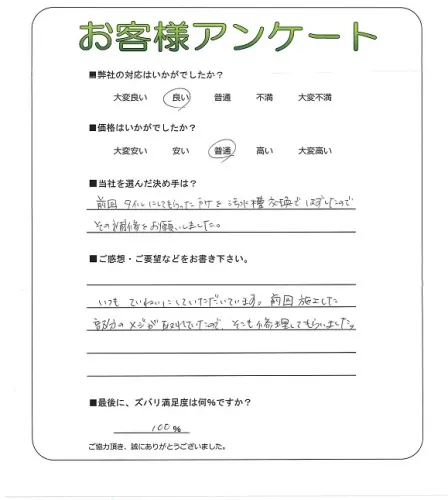 お客様アンケート
■弊社の対応はいかがでしたか？
大変良い 良い 普通 不満 大変不満
■価格はいかがでしたか？
大変安い 安い 普通 高い 大変高い
■当社を選んだ決め手は？
前回 タイルにしてもらった所を汚水槽交換ではずしたので
その補修をお願いしました。
■ご感想・ご要望などをお書き下さい。
いつも ていねいにしていただいています。前回 施工した
部分のメジが取れていたので、そこも修理してもらいました。
■最後に、ズバリ満足度は何%ですか？
100%
ご協力頂き、誠にありがとうございました。